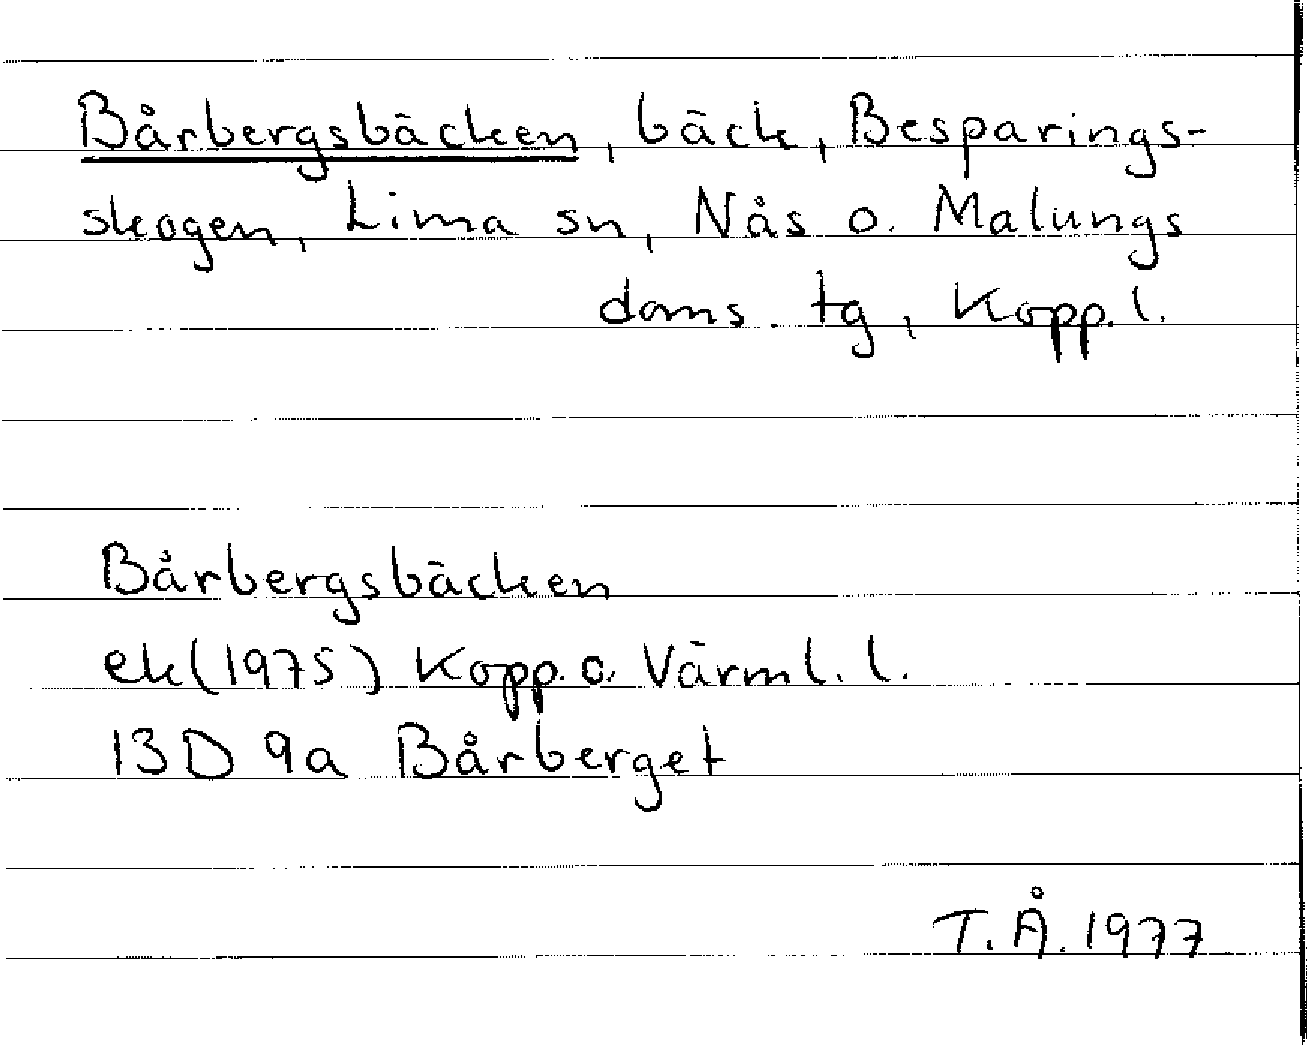 Bårbergsbäcken, bäck, Besparings-
skogen, Lima sn, Nås o. Malungs
doms. tg, Kopp. l.
Bårbergsbäcken
ek (1975) Kopp. o. Värml. l.
13D 9a Bårberget
T. Å. 1977